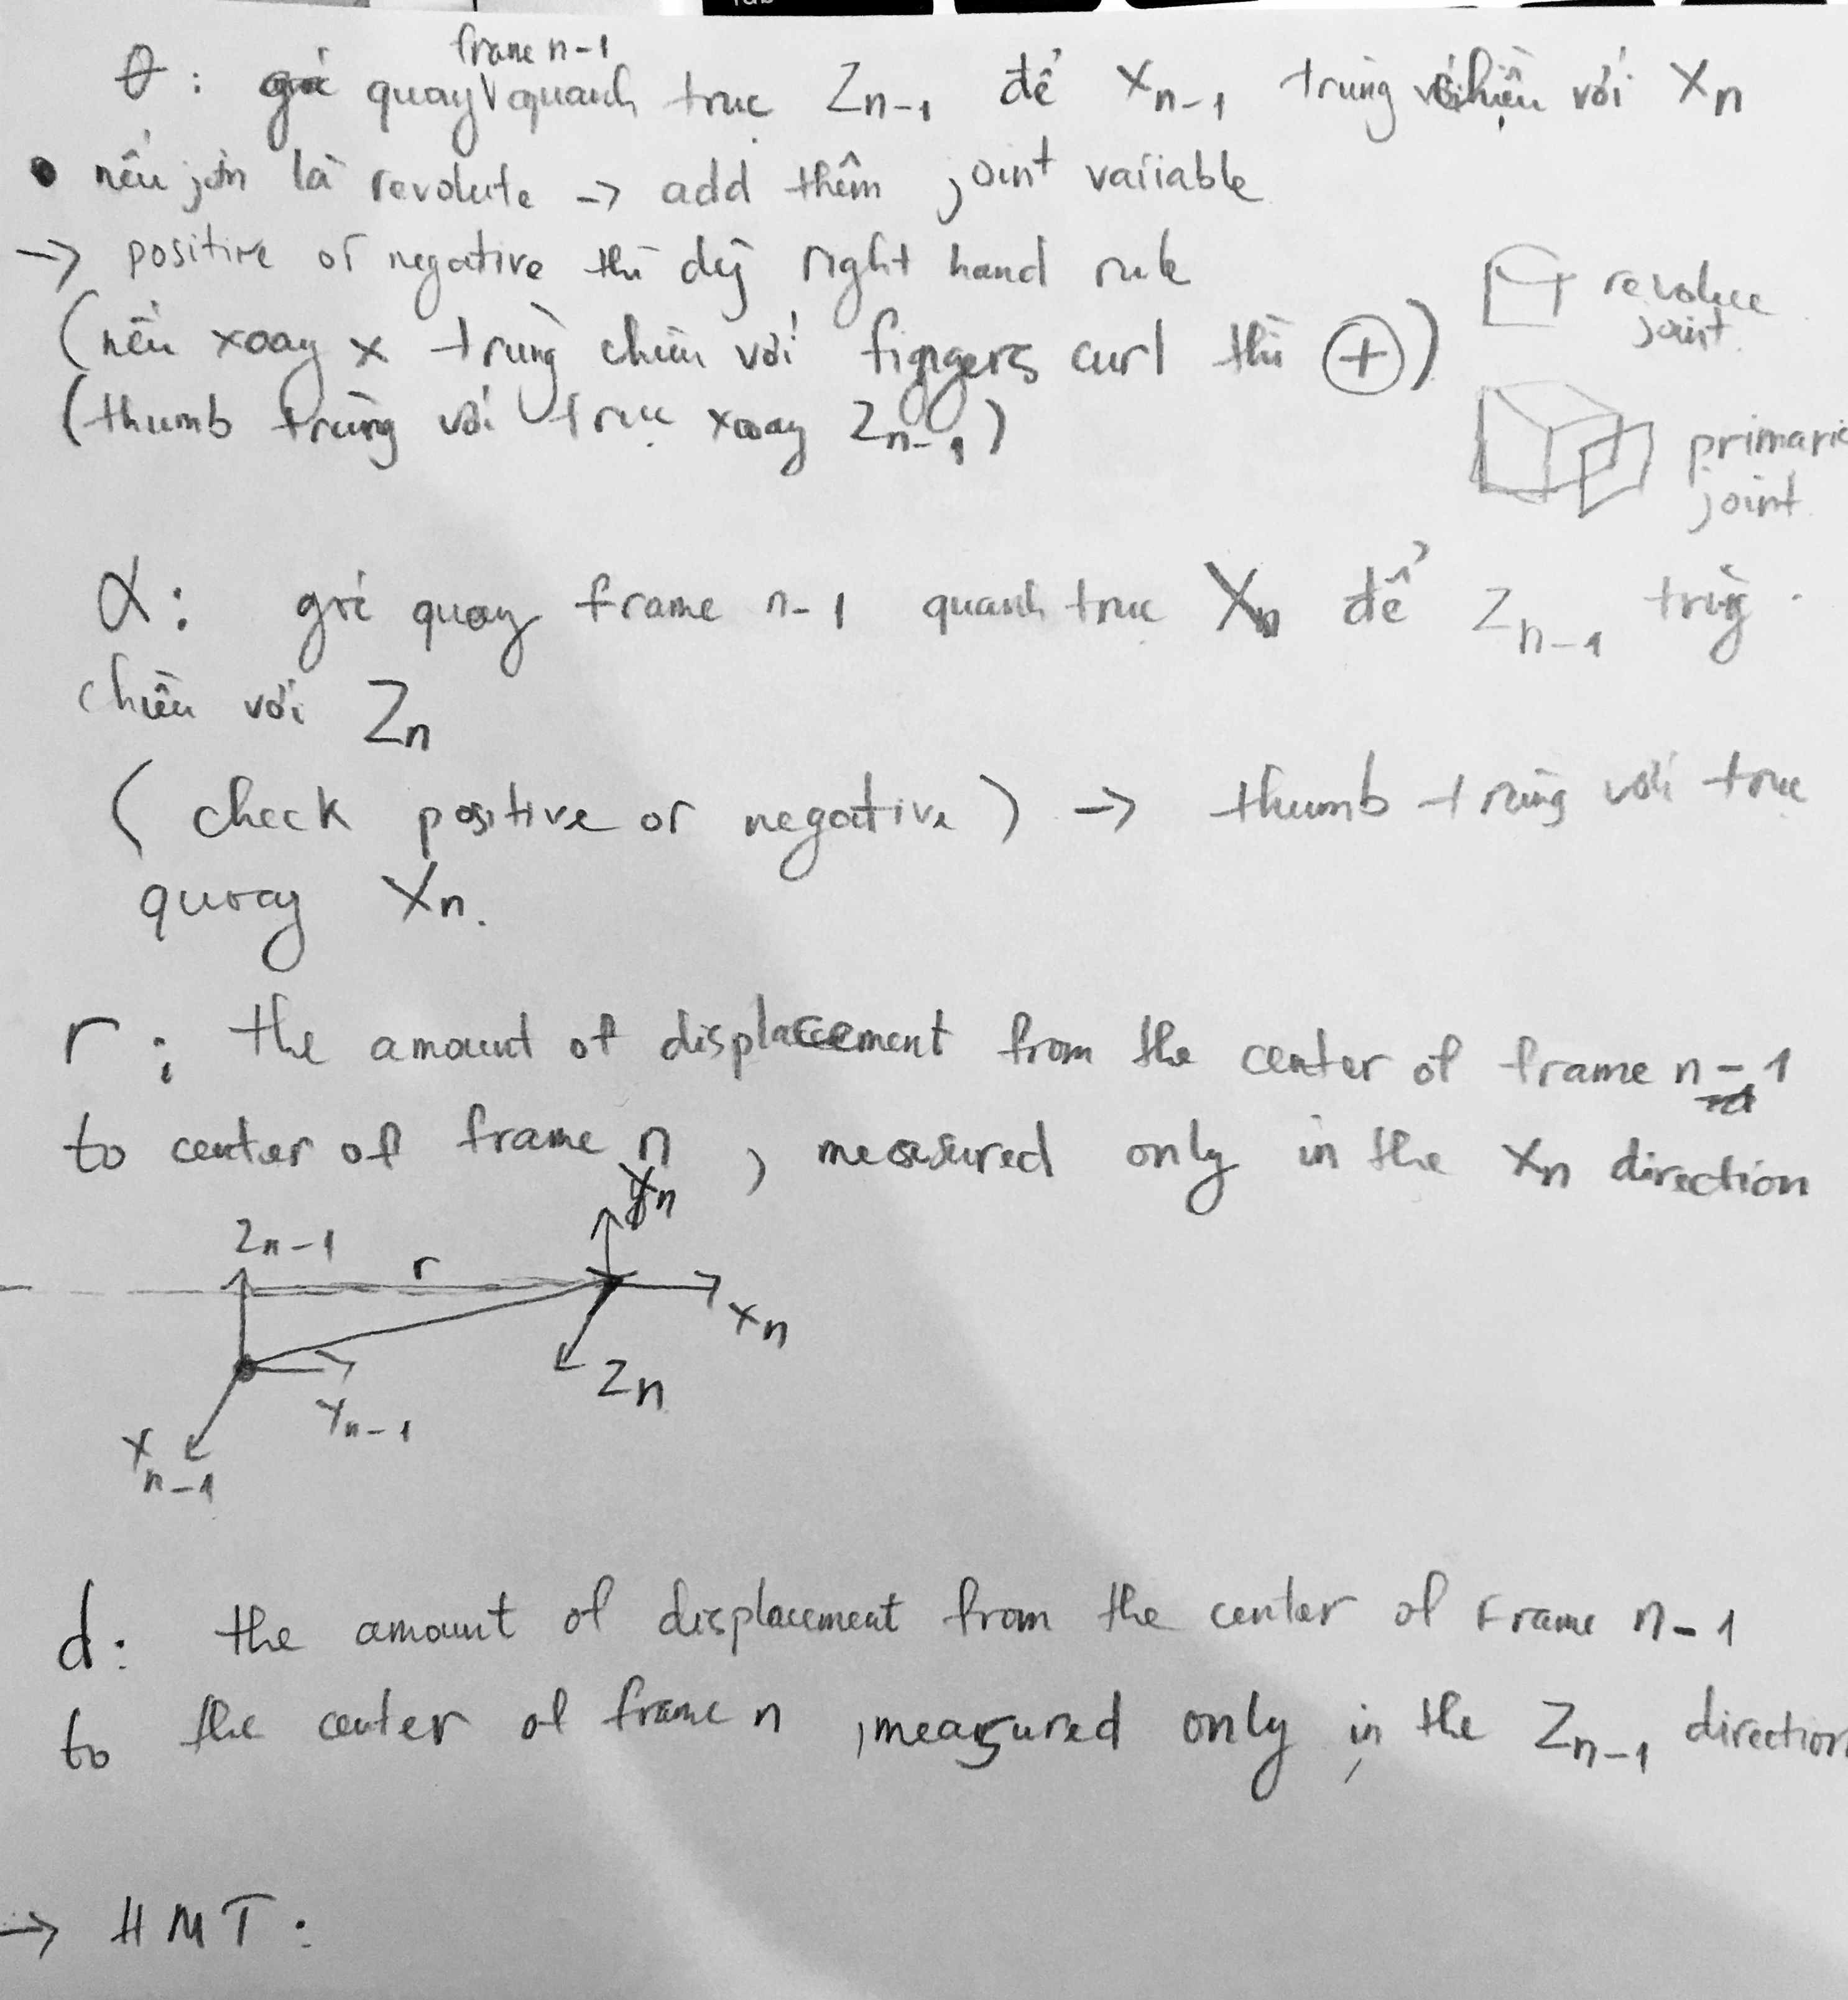 frame n-1
θ: góc quay quanh trục Zn-1 để Xn-1 trùng chiều với Xn
• nếu join là revolute → add thêm joint variable
→ positive or negative thì dùng right hand rule
revolute joint
(nếu xoay x trùng chiều với fingers curl thì ⊕)
(thumb trùng với trục xoay Zn-1)
primaric joint
α: góc quay frame n-1 quanh trục Xn để Zn-1 trùng
chiều với Zn
(check positive or negative) → thumb trùng với trục
quay Xn.
r: the amount of displacement from the center of frame n-1
to center of frame n, measured only in the Xn direction
Yn
Zn-1
r
Xn
Zn
Yn-1
Xn-1
d: the amount of displacement from the center of Frame n-1
to the center of frame n, measured only in the Zn-1 direction
→ HMT: